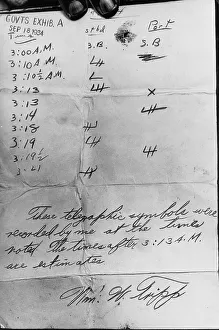 GOVT'S EXHIB. A
SEP 18 1934
Time Stbd Port
3:00 A.M. S.B. S.B
3:10 A.M.
3:10½ A.M.
3:13 X
3:13
3:14
3:18
3:19
3:19½
3:21
These telegraphic symbols were
recorded by me at the times
noted. The times after 3:13 A.M.
are estimates
Wm. W. Tripp